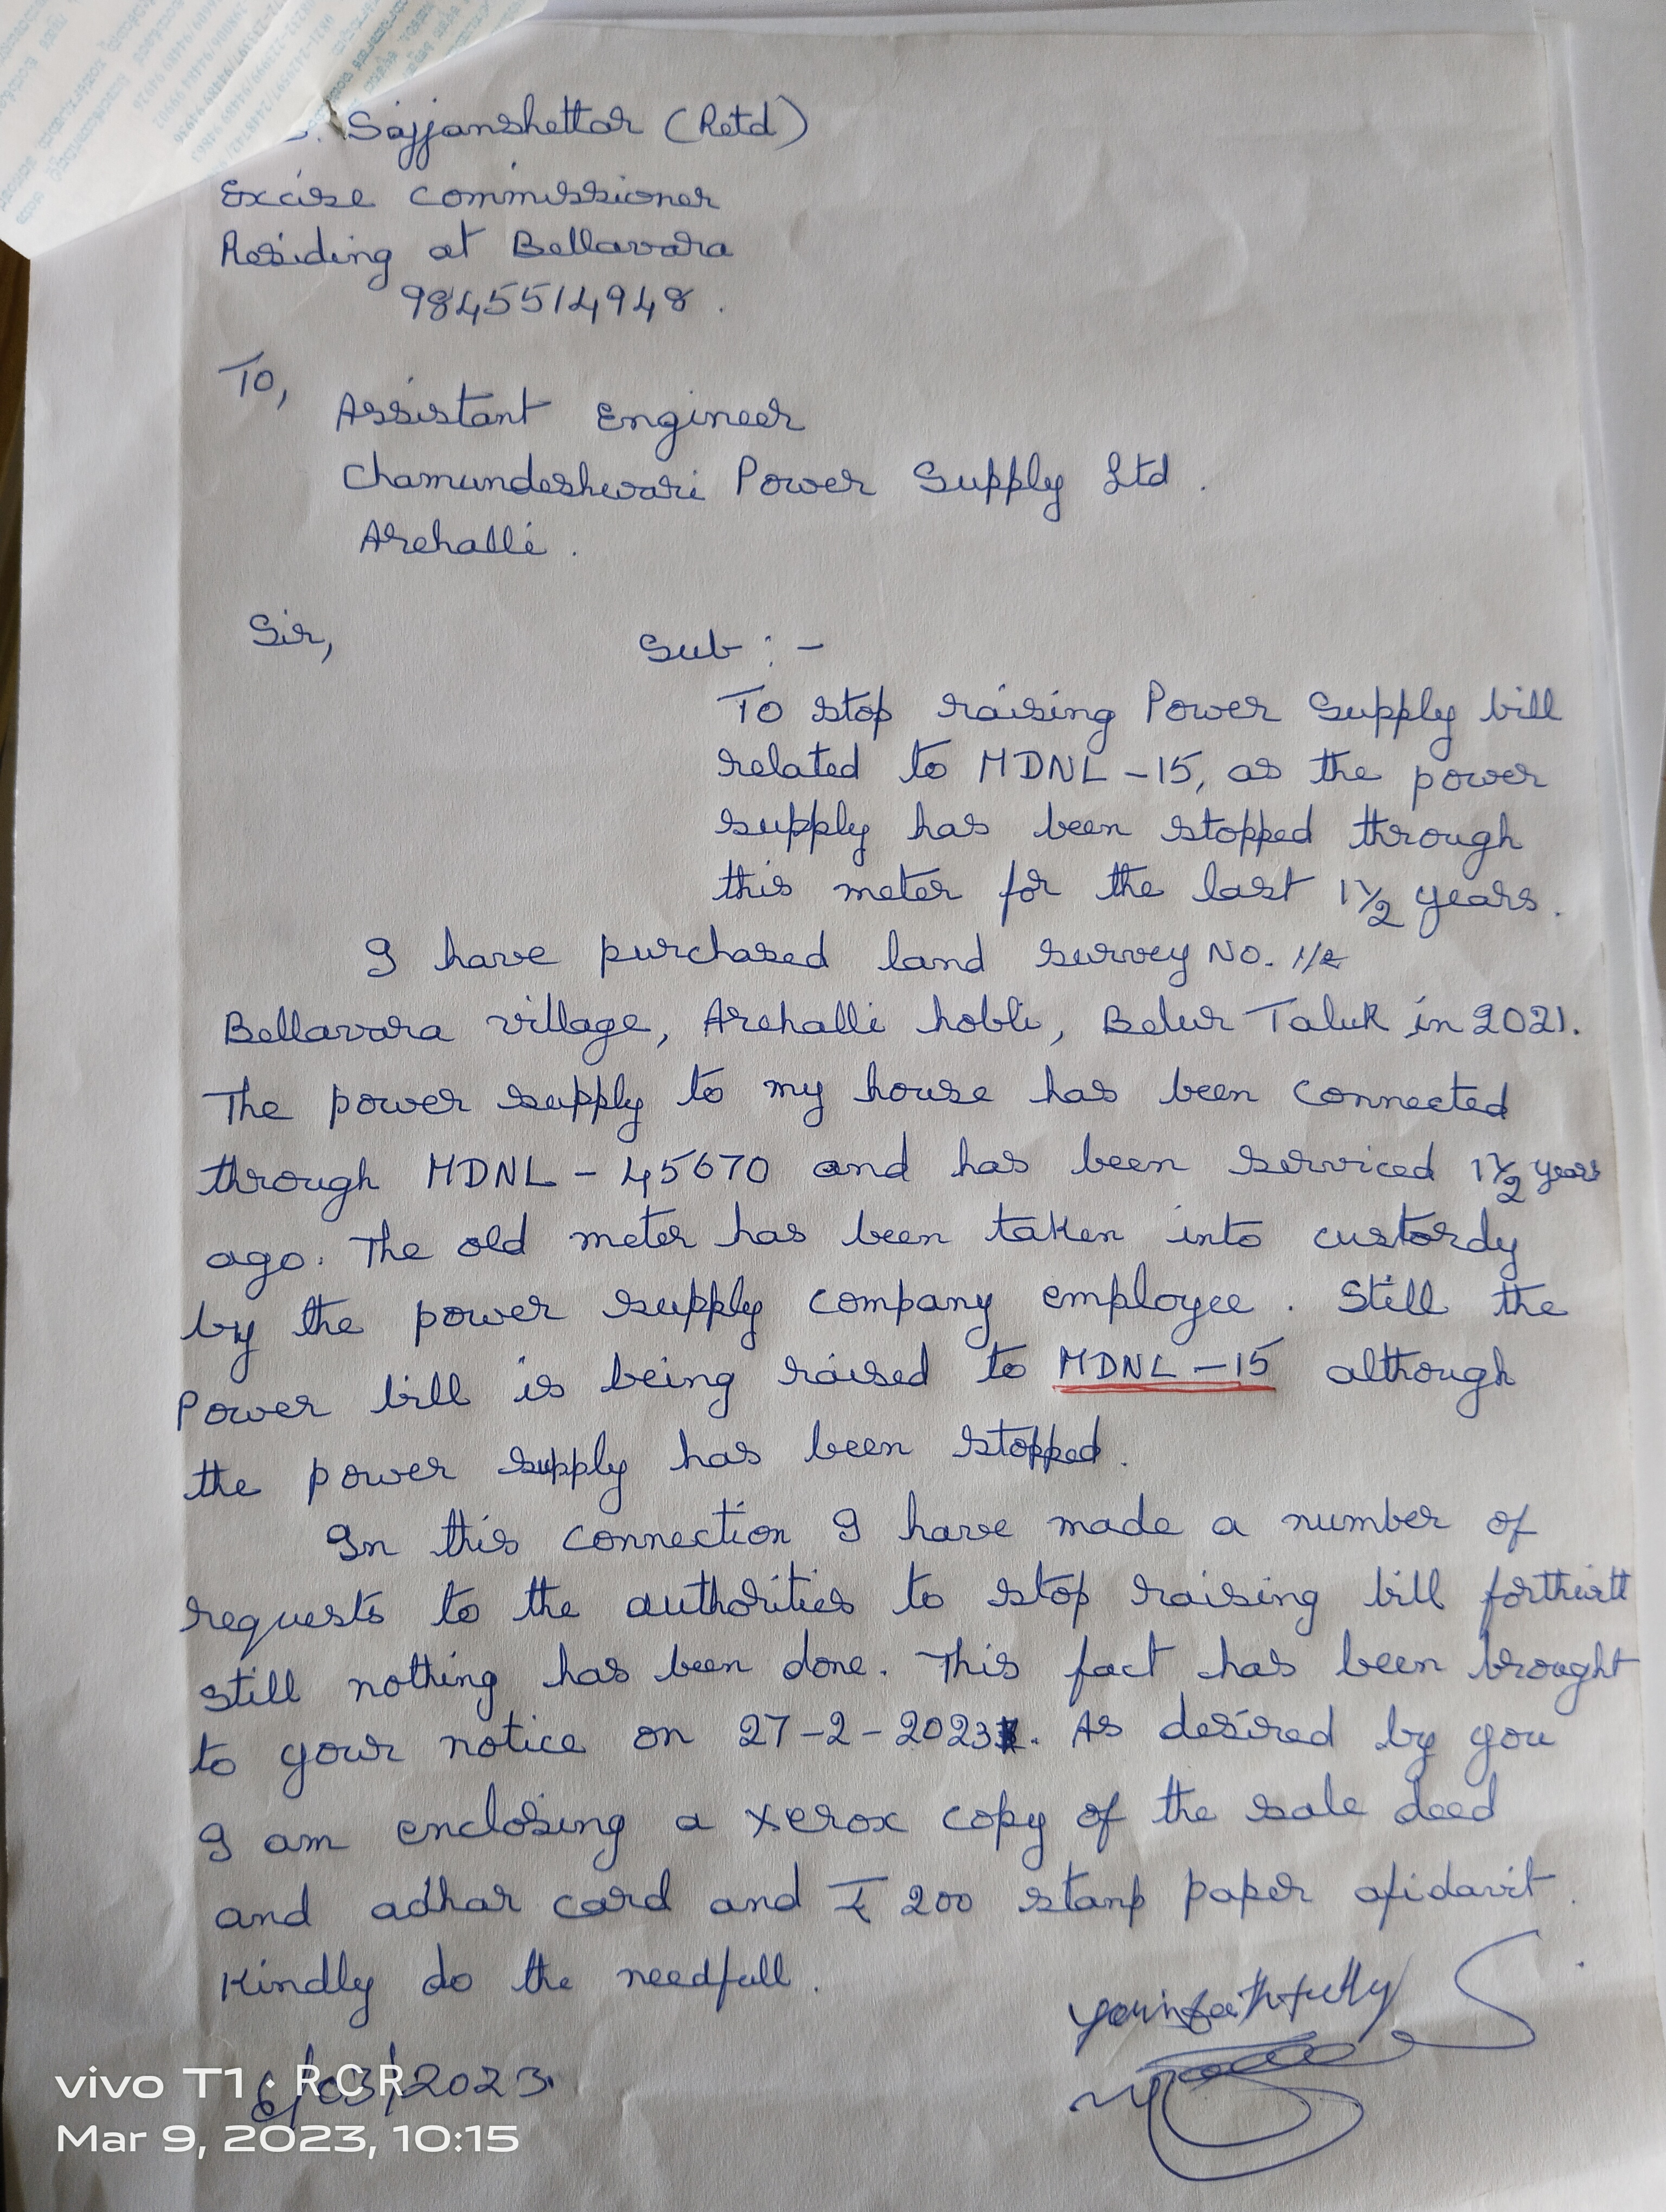 S. Sajjanshettar (Retd)
Excise Commissioner
Residing at Bellavara
9845514948.
To,
Assistant Engineer
Chamundeshwari Power Supply Ltd.
Arehalli.
Sir,
Sub :-
To stop raising Power Supply bill
related to MDNL-15, as the power
supply has been stopped through
this meter for the last 1½ years.
I have purchased land survey No. 1/2
Bellavara village, Arehalli hobli, Belur Taluk in 2021.
The power supply to my house has been connected
through MDNL-45670 and has been serviced 1½ years
ago. The old meter has been taken into custordy
by the power supply company employee. Still the
Power bill is being raised to MDNL-15 although
the power supply has been stopped.
In this connection I have made a number of
requests to the authorities to stop raising bill
still nothing has been done. This fact has been brought
to your notice on 27-2-2023. As desired by you
I am enclosing a xerox copy of the sale deed
and adhar card and ₹ 200 stanp paper afidavit.
Kindly do the needfull.
yours faithfully
6/03/2023.
vivo T1 · RCR
Mar 9, 2023, 10:15